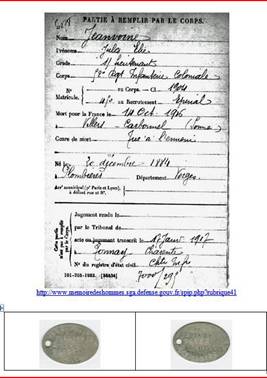 PARTIE À REMPLIR PAR LE CORPS.
Nom Jeanvoine
Prénoms Jules Elie
Grade S/ Lieutenant
Corps 5e Rgt Infanterie Coloniale
N° au Corps. — Cl. 1904
Matricule. au Recrutement
Mort pour la France le 14 Oct. 1916
à Villers Carbonnel (Somme)
Genre de mort Tué à l'ennemi
Né le 30 décembre 1884
à Plombières Département Vosges
Arr. municipal (pr Paris et Lyon), à défaut rue et N°.
Jugement rendu le
par le Tribunal de
acte ou jugement transcrit le 17 Janv. 1917
à Tonnay Charente
N° du registre d'état civil
101-708-1922. [26434]
http://www.memoiredeshommes.sga.defense.gouv.fr/spip.php?rubrique41